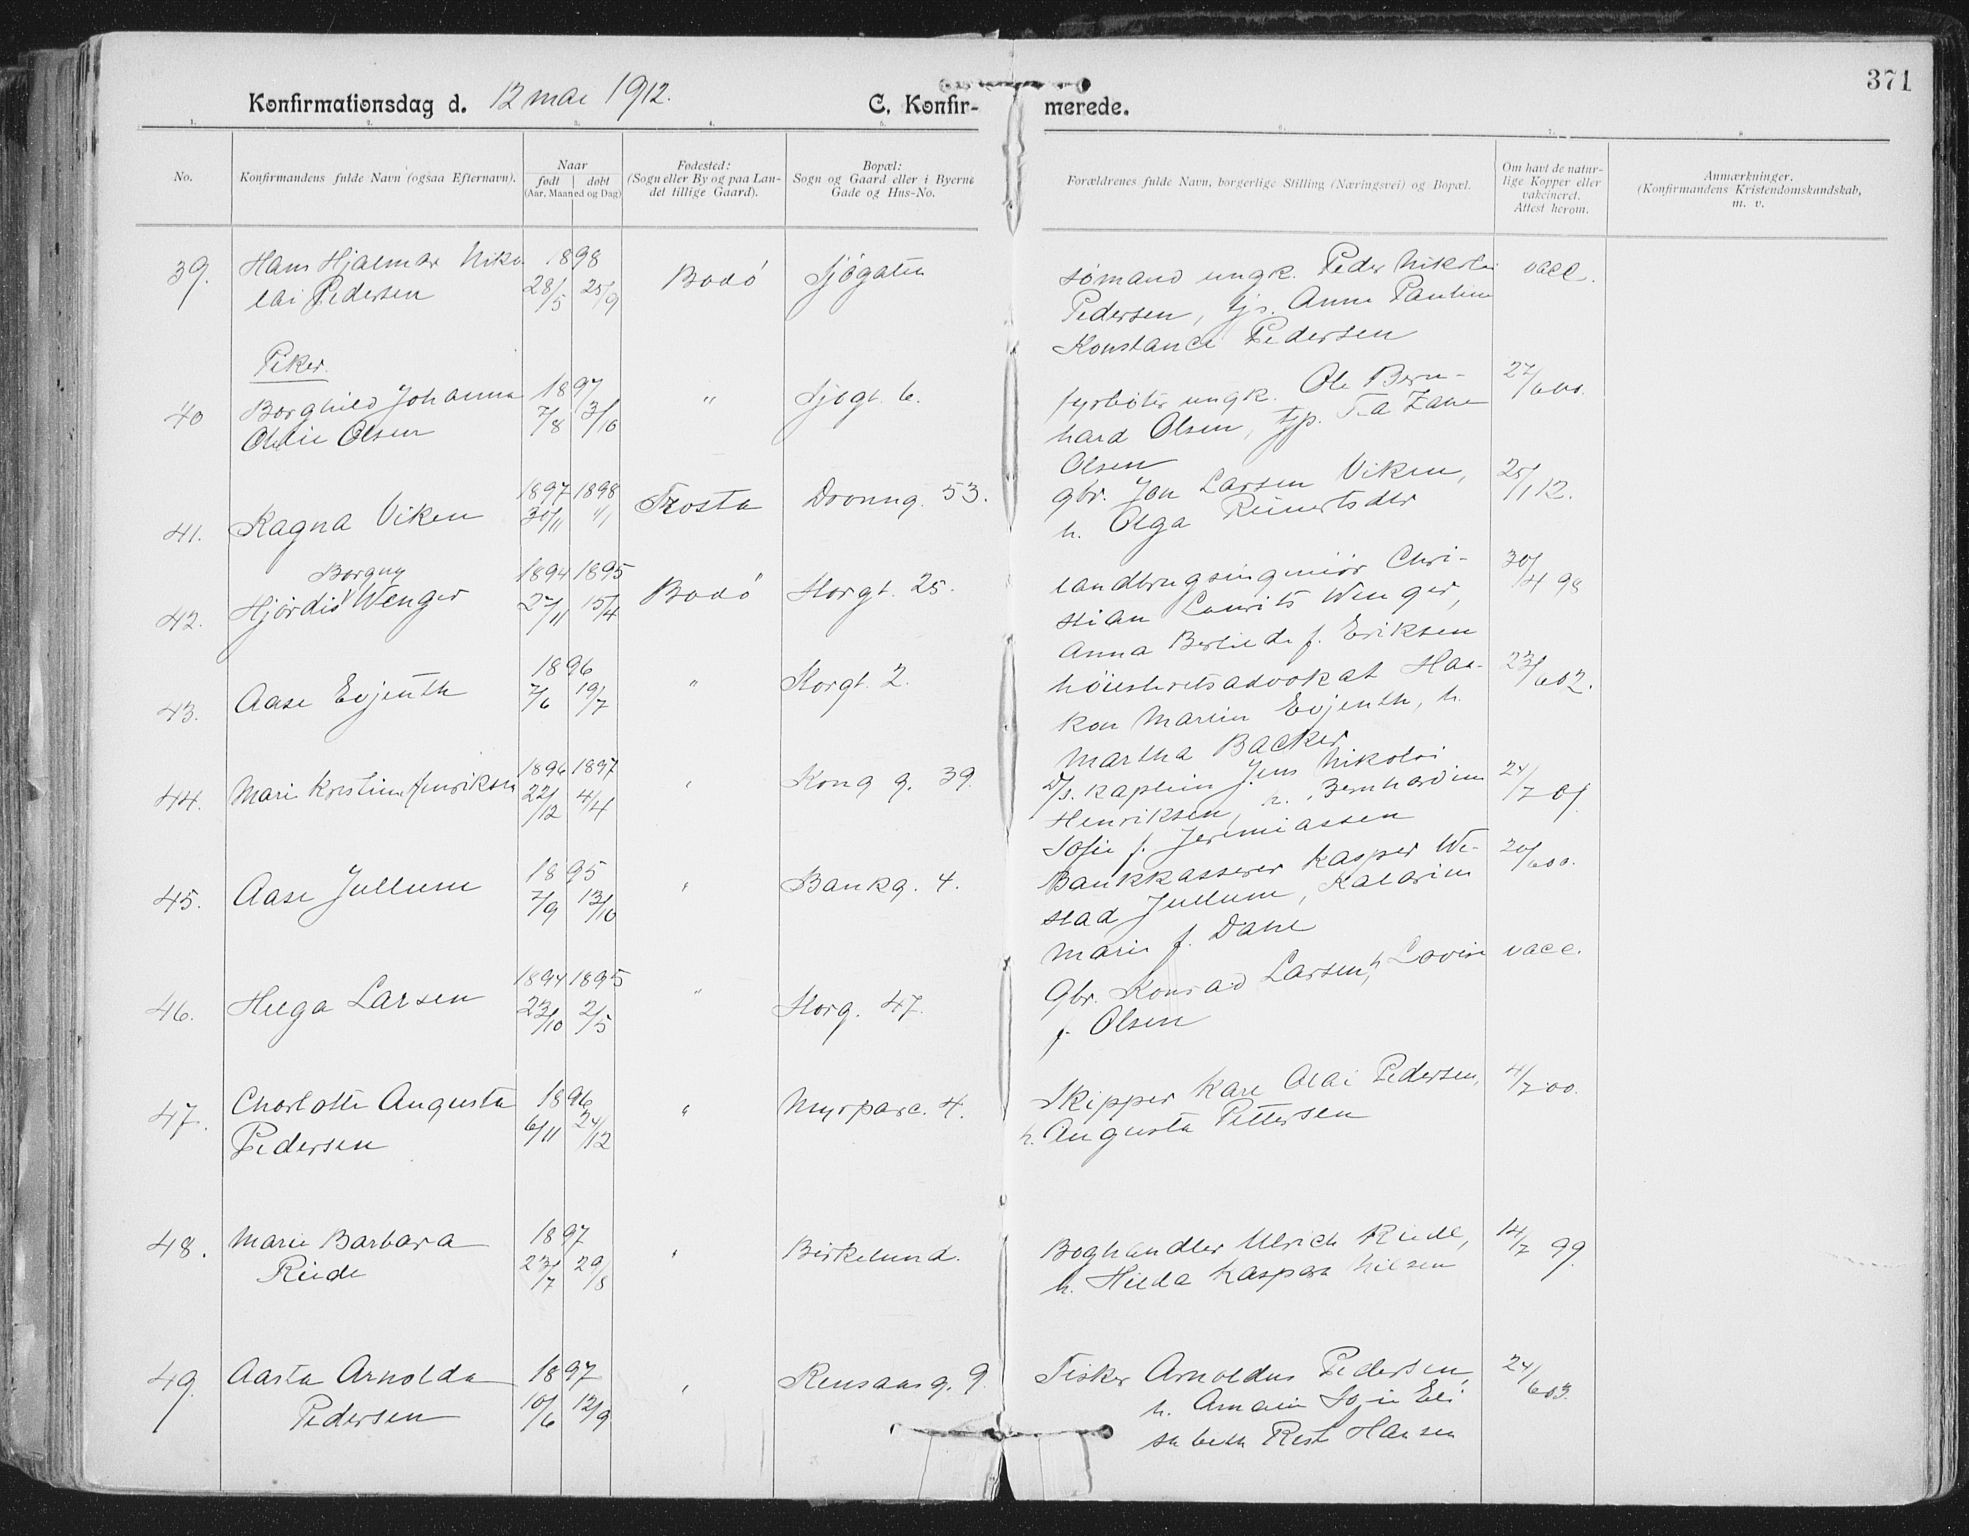 371
Konfirmationsdag d. 12 mai 1912.
C. Konfir- merede.
1. 2. 3. 4. 5. 6. 7. 8
No.
Konfirmandens fulde Navn (ogsaa Efternavn).
Naar
født døbt
(Aar, Maaned og Dag)
Fødested:
(Sogn eller By og paa Lan-
det tillige Gaard).
Bopæl:
Sogn og Gaard eller i Byerne
Gade og Hus-No.
Forældrenes fulde Navn, borgerlige Stilling (Næringsvei) og Bopæl.
Om havt de natur-
lige Kopper eller
vakcineret.
Attest herom.
Anmærkninger.
(Konfirmandens Kristendomskundskab,
m. v.
39. Hans Hjalmar Niko
lai Pedersen
1898
28/5 25/9
Bodö
Sjøgaten
Sømand ungk. Peder Nikolai
Pedersen, tj. Anna Pauline
Konstance Pedersen
vacc.
Piker.
40 Borghild Johanna
Otelie Olsen
1897
7/8 3/10
"
Sjøgt. 6.
fyrbøter ungk. Ole Bern-
hard Olsen, tjp.
Olsen
27/6 00.
41. Ragna Viken
1897 1898
30/11 "/1
Trosta
Dronng. 53.
gbr. Jon Larsen Viken,
h. Olga Reinertsdtr
25/1 12.
42. Hjördis Borgny Wenger
1894 1895
27/11 15/4
Bodö
Storgt. 25.
landbrugsingeniör Chri-
stian Laurits Wenger,
Anna Bertine f. Eriksen
30/4 98
43. Aase Evjenth
1896
7/6 19/7
"
Storgt. 2.
höiesteretsadvokat Haa-
kon Martin Evjenth, h.
Martha Backer
23/6 02.
44. Mari Kristine Henriksen
1896 1897
22/12 4/4
"
Kong g. 39.
D/s. kaptein Jens Nikolai
Henriksen, h. Bernhardine
Sofie f. Jeremiassen
24/7 01
45. Aase Jullum
1895
7/9 13/10
"
Bankg. 4.
Bankkasserer Kasper We-
stad Jullum, Katarina
Marie f. Dahl
20/6 00.
46. Helga Larsen
1894 1895
23/10 2/5
"
Storg. 47.
Gbr. Konrad Larsen, h. Lovise
f. Olsen
vacc.
47. Charlotte Augusta
Pedersen
1896
6/11 24/12
"
Myrparc. 4.
Skipper Karl Olai Pedersen,
h. Augusta Pettersen
4/7 00.
48. Marie Barbara
Riede
1897
23/7 29/8
"
Birkelund.
Boghandler Ulrich Riede,
h. Hilda Kaspara Nilsen
14/7 99.
49. Aasta Arnolda
Pedersen
1897
10/6 12/9
"
Rensaasg. 9.
Fisker Arnoldus Pedersen,
h. Amalie Eli
sabeth Hansen
24/6 03.